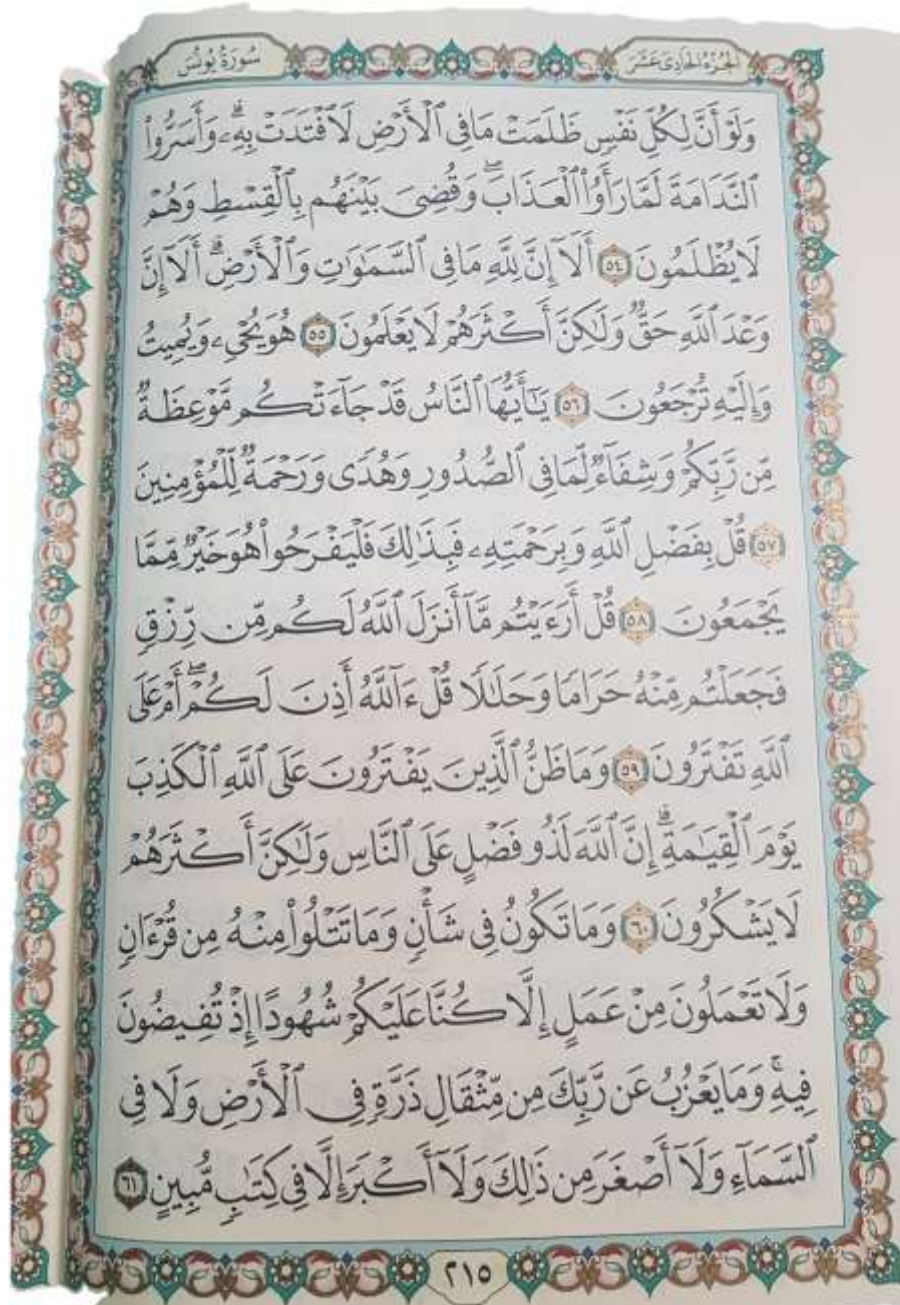 سُورَةُ يُونُسَ
الجُزْءُ الحَادِيَ عَشَرَ
وَلَوْ أَنَّ لِكُلِّ نَفْسٍ ظَلَمَتْ مَا فِي ٱلْأَرْضِ لَٱفْتَدَتْ بِهِۦۗ وَأَسَرُّواْ
ٱلنَّدَامَةَ لَمَّا رَأَوُاْ ٱلْعَذَابَۖ وَقُضِيَ بَيْنَهُم بِٱلْقِسْطِ وَهُمْ
لَا يُظْلَمُونَ ٥٤ أَلَآ إِنَّ لِلَّهِ مَا فِي ٱلسَّمَٰوَٰتِ وَٱلْأَرْضِۗ أَلَآ إِنَّ
وَعْدَ ٱللَّهِ حَقٌّ وَلَٰكِنَّ أَكْثَرَهُمْ لَا يَعْلَمُونَ ٥٥ هُوَ يُحْيِۦ وَيُمِيتُ
وَإِلَيْهِ تُرْجَعُونَ ٥٦ يَٰٓأَيُّهَا ٱلنَّاسُ قَدْ جَآءَتْكُم مَّوْعِظَةٌ
مِّن رَّبِّكُمْ وَشِفَآءٌ لِّمَا فِي ٱلصُّدُورِ وَهُدًى وَرَحْمَةٌ لِّلْمُؤْمِنِينَ
٥٧ قُلْ بِفَضْلِ ٱللَّهِ وَبِرَحْمَتِهِۦ فَبِذَٰلِكَ فَلْيَفْرَحُواْ هُوَ خَيْرٌ مِّمَّا
يَجْمَعُونَ ٥٨ قُلْ أَرَءَيْتُم مَّآ أَنزَلَ ٱللَّهُ لَكُم مِّن رِّزْقٍ
فَجَعَلْتُم مِّنْهُ حَرَامًا وَحَلَٰلًا قُلْ ءَآللَّهُ أَذِنَ لَكُمْۖ أَمْ عَلَى
ٱللَّهِ تَفْتَرُونَ ٥٩ وَمَا ظَنُّ ٱلَّذِينَ يَفْتَرُونَ عَلَى ٱللَّهِ ٱلْكَذِبَ
يَوْمَ ٱلْقِيَٰمَةِۗ إِنَّ ٱللَّهَ لَذُو فَضْلٍ عَلَى ٱلنَّاسِ وَلَٰكِنَّ أَكْثَرَهُمْ
لَا يَشْكُرُونَ ٦٠ وَمَا تَكُونُ فِي شَأْنٍ وَمَا تَتْلُواْ مِنْهُ مِن قُرْءَانٍ
وَلَا تَعْمَلُونَ مِنْ عَمَلٍ إِلَّا كُنَّا عَلَيْكُمْ شُهُودًا إِذْ تُفِيضُونَ
فِيهِۚ وَمَا يَعْزُبُ عَن رَّبِّكَ مِن مِّثْقَالِ ذَرَّةٍ فِي ٱلْأَرْضِ وَلَا فِي
ٱلسَّمَآءِ وَلَآ أَصْغَرَ مِن ذَٰلِكَ وَلَآ أَكْبَرَ إِلَّا فِي كِتَٰبٍ مُّبِينٍ ٦١
٢١٥